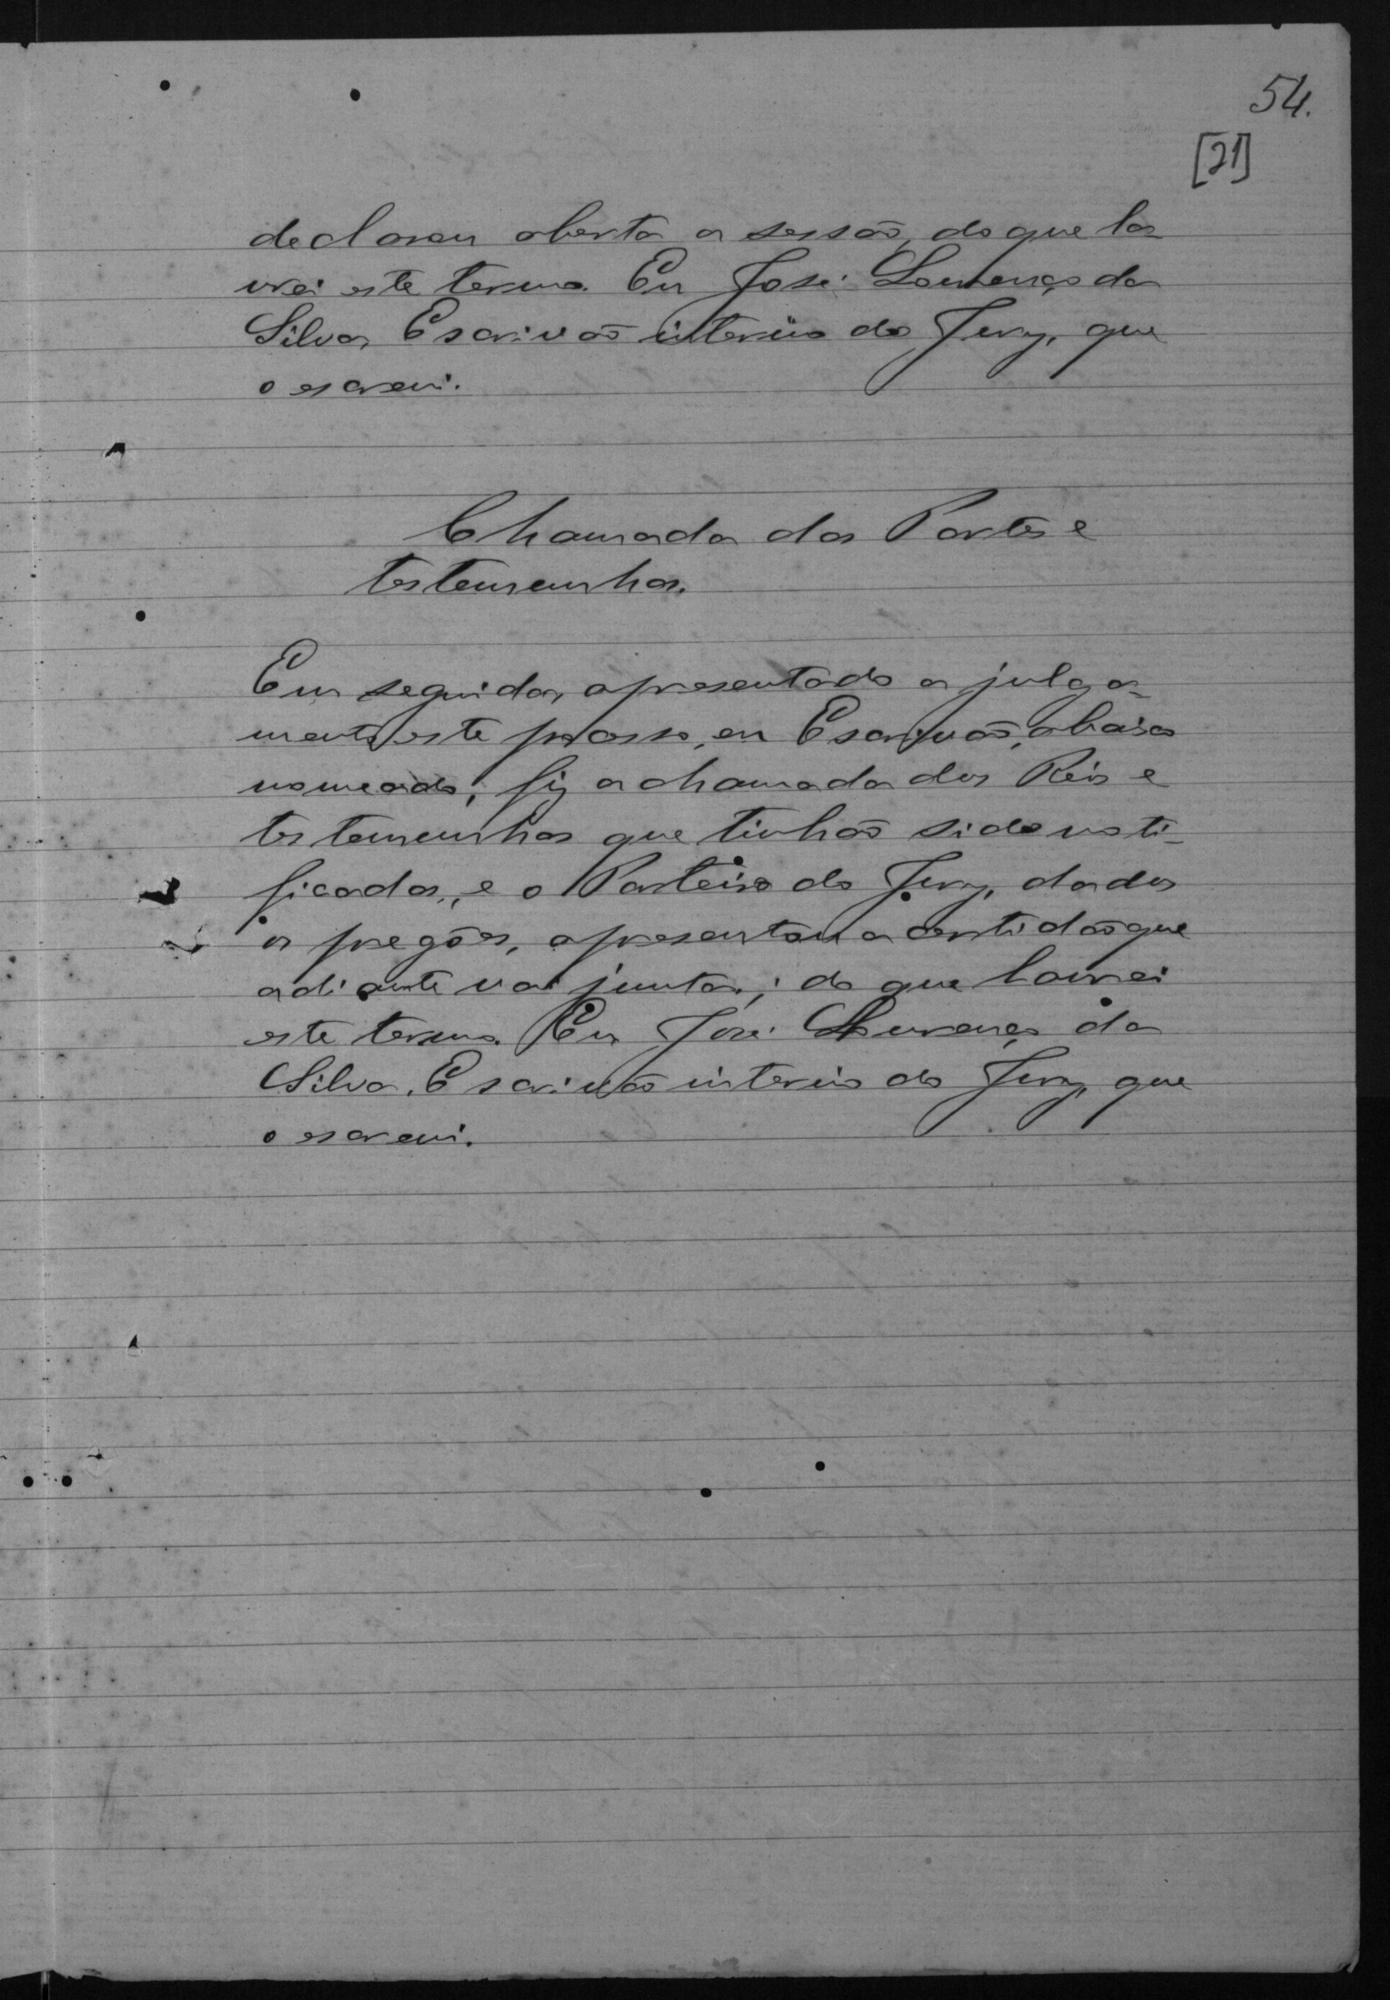 54.
[21]
declarou aberta a sessão, do que la-
vrei este termo. Eu José Lourenço da
Silva, Escrivão interino do Jury, que
o escrevi.
Chamada das Partes e
testemunhas.
Em seguida, apresentado a julga-
mento este processo, eu Escrivão, abaixo
nomeado, fiz a chamada dos Réis e
testemunhas que tinhão sido noti-
ficadas, e o Porteiro do Jury, dados
os pregões, apresentou a certidão que
adiante vai junta; do que lavrei
este termo. Eu José Lourenço da
Silva, Escrivão interino do Jury, que
o escrevi.